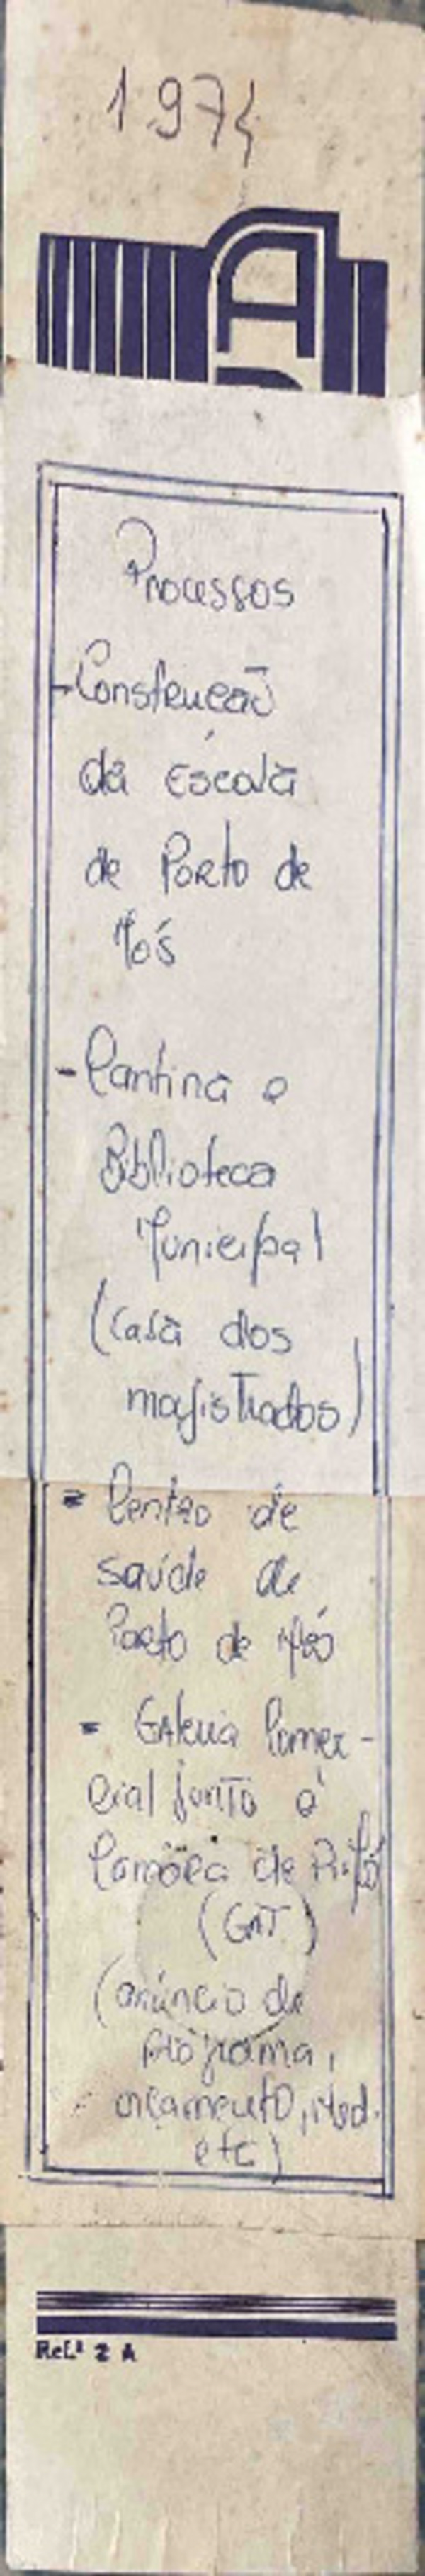 1974
A
Processos
- Construção
da Escola
de Porto de
Mós
- Cantina e
Biblioteca
Municipal
(Casa dos
magistrados)
= Centro de
saúde de
Porto de Mós
= Galeria Comer-
cial junto à
Câmara de P. Mós
(GAT)
(anúncio de
programa,
orçamento, Med.
etc)
Ref.ª 2 A